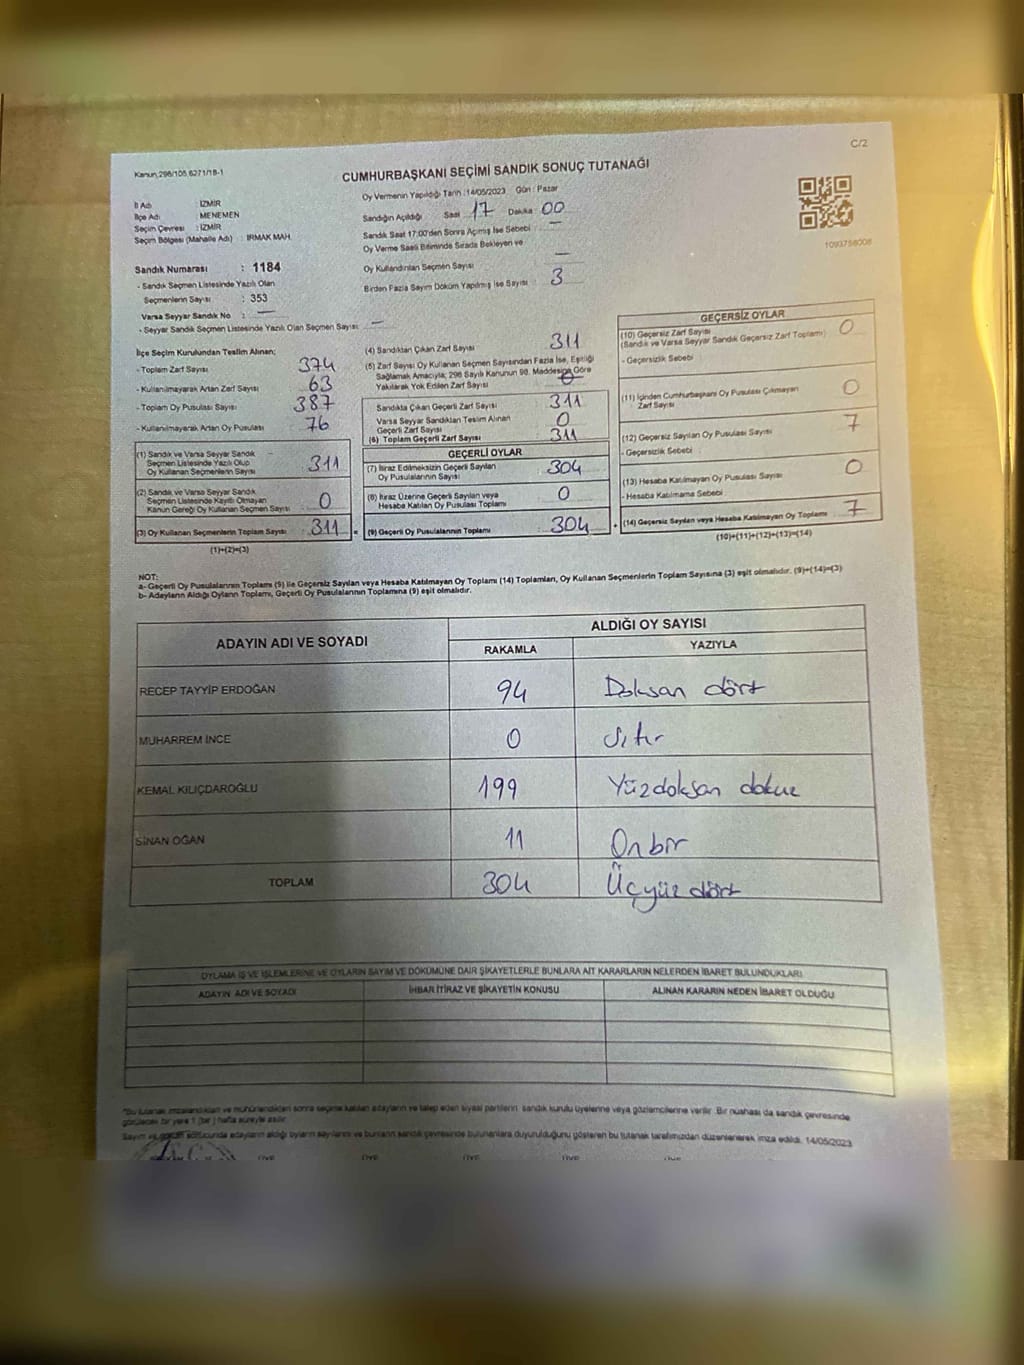 C/2
Kanun,298/105,6271/18-1
CUMHURBAŞKANI SEÇİMİ SANDIK SONUÇ TUTANAĞI
İl Adı : İZMİR
İlçe Adı : MENEMEN
Seçim Çevresi : İZMİR
Seçim Bölgesi (Mahalle Adı) : IRMAK MAH.
Oy Vermenin Yapıldığı Tarih :14/05/2023 Gün : Pazar
Sandığın Açıldığı Saat 17 Dakika 00
Sandık Saat 17:00'den Sonra Açılmış İse Sebebi : —
Oy Verme Saati Bitiminde Sırada Bekleyen ve
Oy Kullandırılan Seçmen Sayısı —
Birden Fazla Sayım Döküm Yapılmış İse Sayısı : 3
1093758008
Sandık Numarası : 1184
- Sandık Seçmen Listesinde Yazılı Olan
Seçmenlerin Sayısı : 353
Varsa Seyyar Sandık No : —
- Seyyar Sandık Seçmen Listesinde Yazılı Olan Seçmen Sayısı: —
İlçe Seçim Kurulundan Teslim Alınan;
- Toplam Zarf Sayısı 374
- Kullanılmayarak Artan Zarf Sayısı 63
- Toplam Oy Pusulası Sayısı 387
- Kullanılmayarak Artan Oy Pusulası 76
(1) Sandık ve Varsa Seyyar Sandık
Seçmen Listesinde Yazılı Olup
Oy Kullanan Seçmenlerin Sayısı 311
(2) Sandık ve Varsa Seyyar Sandık
Seçmen Listesinde Kayıtlı Olmayan
Kanun Gereği Oy Kullanan Seçmen Sayısı 0
(3) Oy Kullanan Seçmenlerin Toplam Sayısı 311 =
(1)+(2)=(3)
(4) Sandıktan Çıkan Zarf Sayısı 311
(5) Zarf Sayısı Oy Kullanan Seçmen Sayısından Fazla İse, Eşitliği
Sağlamak Amacıyla; 298 Sayılı Kanunun 98. Maddesine Göre
Yakılarak Yok Edilen Zarf Sayısı 0
Sandıkta Çıkan Geçerli Zarf Sayısı 311
Varsa Seyyar Sandıktan Teslim Alınan
Geçerli Zarf Sayısı 0
(6) Toplam Geçerli Zarf Sayısı 311
GEÇERLİ OYLAR
(7) İtiraz Edilmeksizin Geçerli Sayılan
Oy Pusulalarının Sayısı 304
(8) İtiraz Üzerine Geçerli Sayılan veya
Hesaba Katılan Oy Pusulası Toplamı 0
(9) Geçerli Oy Pusulalarının Toplamı 304 +
GEÇERSİZ OYLAR
(10) Geçersiz Zarf Sayısı
(Sandık ve Varsa Seyyar Sandık Geçersiz Zarf Toplamı) 0
- Geçersizlik Sebebi
(11) İçinden Cumhurbaşkanı Oy Pusulası Çıkmayan
Zarf Sayısı 0
(12) Geçersiz Sayılan Oy Pusulası Sayısı 7
- Geçersizlik Sebebi
(13) Hesaba Katılmayan Oy Pusulası Sayısı 0
- Hesaba Katılmama Sebebi
(14) Geçersiz Sayılan veya Hesaba Katılmayan Oy Toplamı 7
(10)+(11)+(12)+(13)=(14)
NOT:
a- Geçerli Oy Pusulalarının Toplamı (9) ile Geçersiz Sayılan veya Hesaba Katılmayan Oy Toplamı (14) Toplamları, Oy Kullanan Seçmenlerin Toplam Sayısına (3) eşit olmalıdır. (9)+(14)=(3)
b- Adayların Aldığı Oyların Toplamı, Geçerli Oy Pusulalarının Toplamına (9) eşit olmalıdır.
ADAYIN ADI VE SOYADI ALDIĞI OY SAYISI
RAKAMLA YAZIYLA
RECEP TAYYİP ERDOĞAN 94 Doksan dört
MUHARREM İNCE 0 Sıfır
KEMAL KILIÇDAROĞLU 199 Yüzdoksan dokuz
SİNAN OĞAN 11 Onbir
TOPLAM 304 Üçyüz dört
OYLAMA İŞ VE İŞLEMLERİNE VE OYLARIN SAYIM VE DÖKÜMÜNE DAİR ŞİKAYETLERLE BUNLARA AİT KARARLARIN NELERDEN İBARET BULUNDUKLARI
ADAYIN ADI VE SOYADI İHBAR İTİRAZ VE ŞİKAYETİN KONUSU ALINAN KARARIN NEDEN İBARET OLDUĞU
*Bu tutanak imzalandıktan ve mühürlendikten sonra seçime katılan adayların ve talep eden siyasi partilerin sandık kurulu üyelerine veya gözlemcilerine verilir. Bir nüshası da sandık çevresinde
görülecek bir yere 1 (bir) hafta süreyle asılır.
Sayım ve döküm sonucunda adayların aldığı oyların sayılarını ve bunların sandık çevresinde bulunanlara duyurulduğunu gösteren bu tutanak tarafımızdan düzenlenerek imza edildi. 14/05/2023